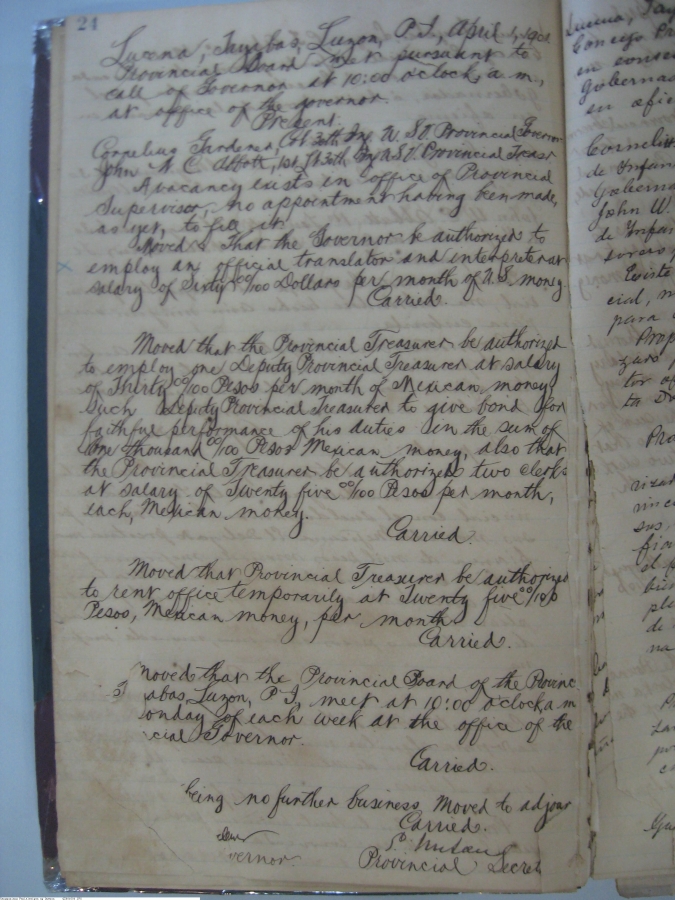 24
Lucena, Tayabas, Luzon, P.I., April 1, 1901
Provincial Board met pursuant to
call of Governor at 10:00 o'clock, a.m.,
at office of the governor.
Present.
Cornelius Gardener, Col 30th Inf. U.S.V. Provincial Governor
John W. C. Abbott, 1st Lt 30th Inf U.S.V. Provincial Treasr
A vacancy exists in office of Provincial
Supervisor, no appointment having been made,
as yet, to fill it.
Moved that the Governor be authorized to
employ an official translator and interpreter at
salary of Sixty 00/100 Dollars per month of U.S. money
Carried.
Moved that the Provincial Treasurer be authorized
to employ one Deputy Provincial Treasurer at salary
of Thirty 00/100 Pesos per month of Mexican money,
such Deputy Provincial Treasurer to give bond for
faithful performance of his duties in the sum of
One thousand 00/100 Pesos Mexican money, also that
the Provincial Treasurer be authorized two clerks
at salary of Twenty five 00/100 Pesos per month,
each, Mexican money.
Carried.
Moved that Provincial Treasurer be authorized
to rent office temporarily at Twenty five 00/100
Pesos, Mexican money, per month
Carried.
Moved that the Provincial Board of the Provinc
abas, Luzon, P.I., meet at 10:00 o'clock a m
onday of each week at the office of the
cial Governor.
Carried.
being no further business Moved to adjour
Carried.
vernor
Provincial Secret
Lucena, Tay
Concejo Pr
en conse
Gobernad
en ofic
Cornelius
de Infan
Goberna
John W.
de Infan
sorero
Existe
cial, n
para
Prop
tor of
Pro
rizad
vinc
sus,